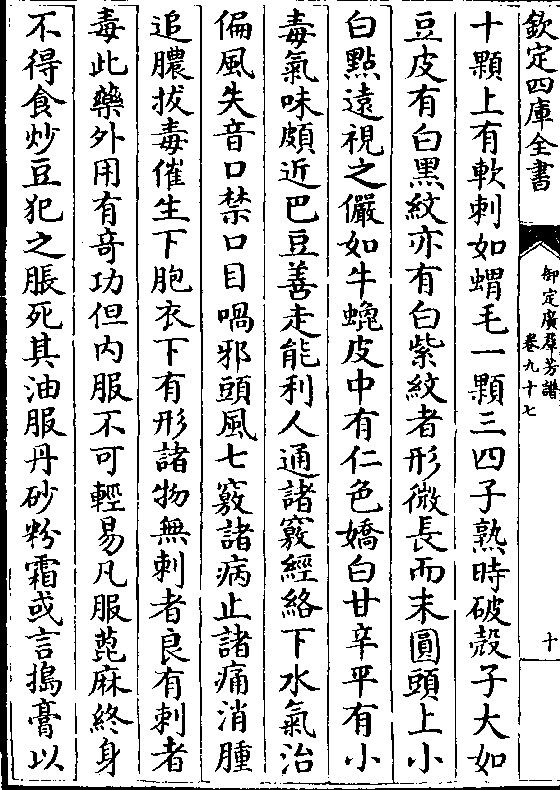 欽定四庫全書
御定廣羣芳譜
卷九十七
十
十顆上有軟刺如蝟毛一顆三四子熟時破殼子大如
豆皮有白黑紋亦有白紫紋者形微長而末圓頭上小
白點遠視之儼如牛蜱皮中有仁色嬌白甘辛平有小
毒氣味頗近巴豆善走能利人通諸竅經絡下水氣治
偏風失音口禁口目喎邪頭風七竅諸病止諸痛消腫
追膿拔毒催生下胞衣下有形諸物無刺者良有刺者
毒此藥外用有竒功但内服不可輕易凡服蓖麻終身
不得食炒豆犯之脹死其油服丹砂粉霜或言搗膏以